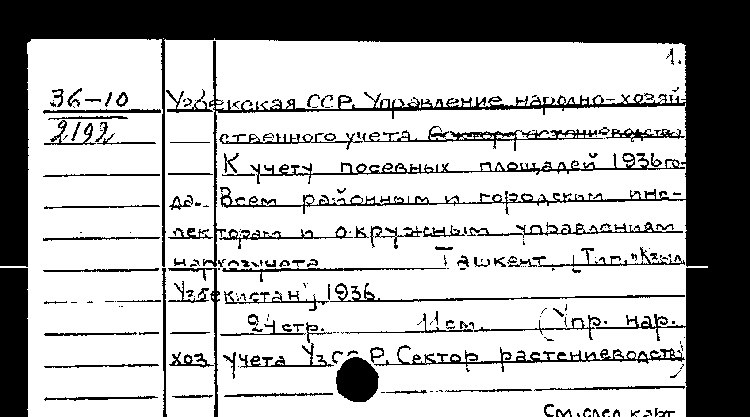 1.
36-10 Узбекская ССР. Управление народно-хозяй-
2192 ственного учета.
К учету посевных площадей 1936 го-
да. Всем районным и городским инс-
пекторам и окружным управлениям
наркозучета Ташкент. [Тип. "Кзыл
Узбекистан"], 1936.
24 стр. 11 см. (Упр. нар.
хоз учета УзССР. Сектор растениеводства)
См. след карт